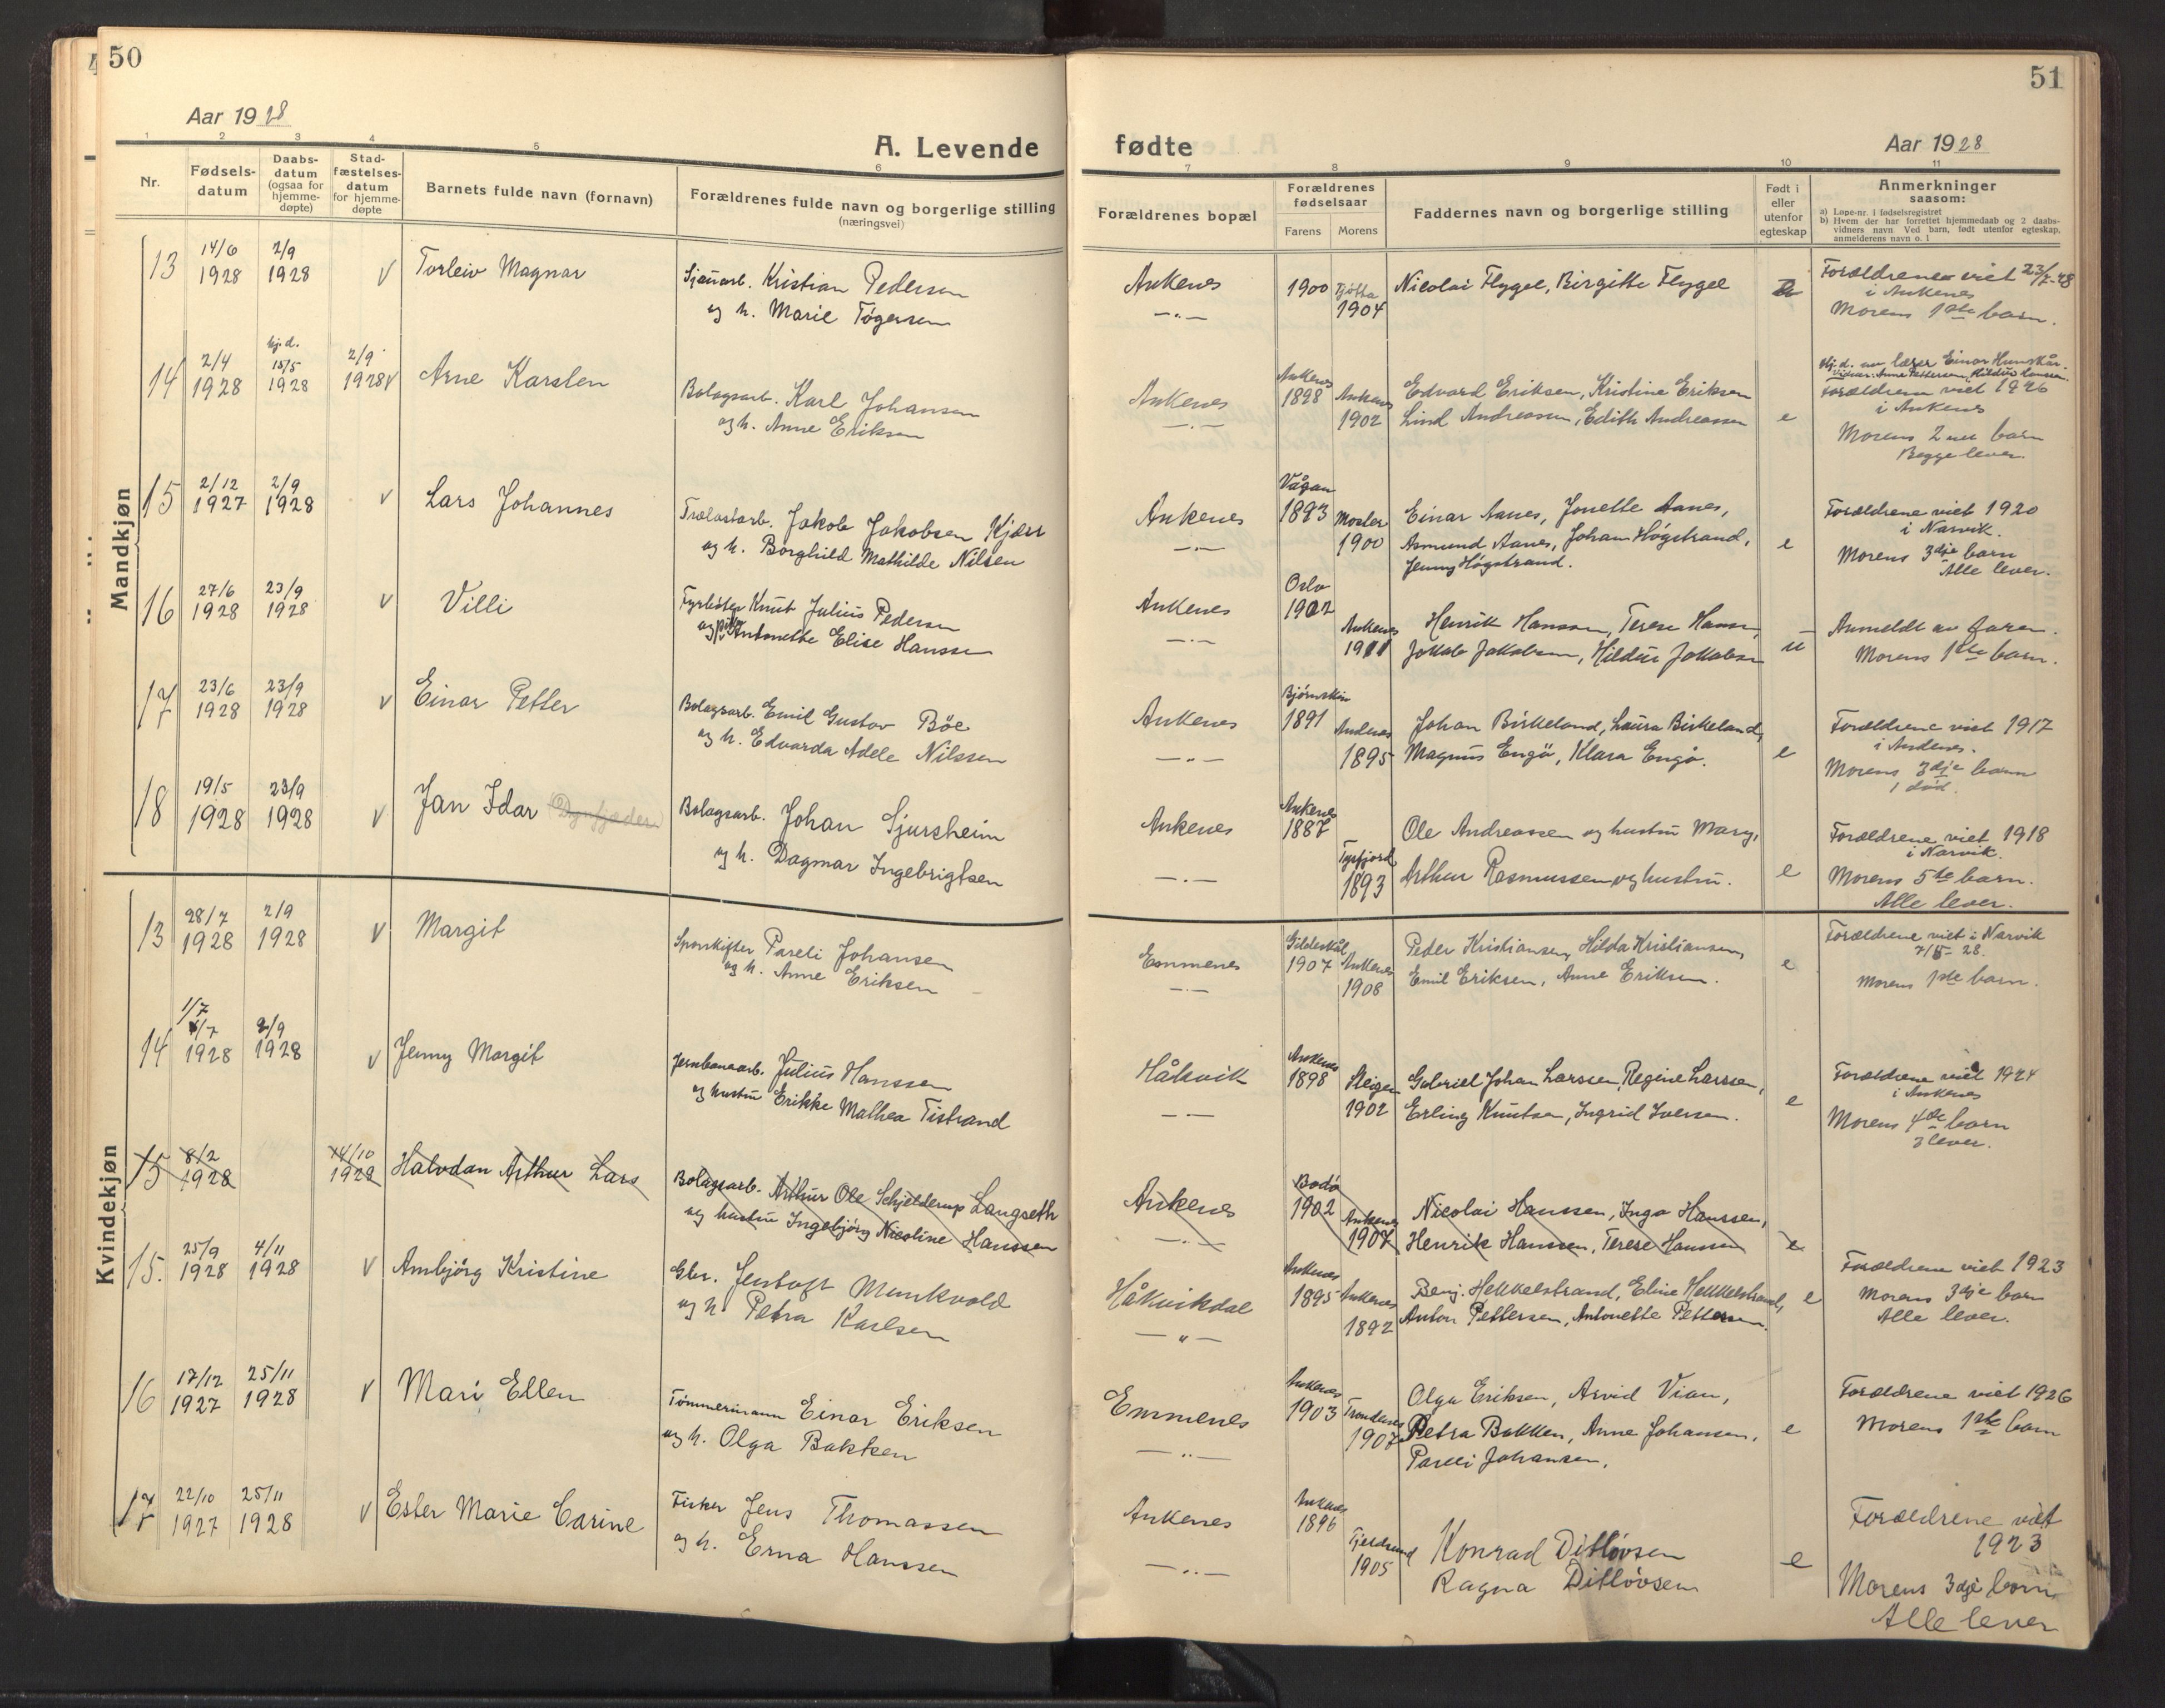 50
Aar 1928
A. Levende
1 2 3 4 5 6
Nr.
Fødsels-
datum
Daabs-
datum
(ogsaa for
hjemme-
døpte)
Stad-
fæstelses-
datum
for hjemme-
døpte
Barnets fulde navn (fornavn)
Forældrenes fulde navn og borgerlige stilling
(næringsvei)
Mandkjøn
13 14/6 1928 2/9 1928 v Torleiv Magnar
Kristian Pedersen
og h. Marie Tøgersen
14 2/4 1928 hj.d. 15/5 1928 2/9 1928 v Arne Karsten
Bolagsarb. Karl Johansen
og h. Anne Eriksen
15 2/12 1927 2/9 1928 v Lars Johannes
Jakob Jakobsen Kjær
og h. Borghild Mathilde Nilsen
16 27/6 1928 23/9 1928 v Villi
Fyrbøter Knut Julius Pedersen
og pike Antonette Elise Hanssen
17 23/6 1928 23/9 1928 v Einar Petter
Bolagsarb. Emil Gustav Bøe
og h. Edvarda Adele Nilssen
18 19/5 1928 23/9 1928 v Jan Idar
Bolagsarb. Johan Sjursheim
og h. Dagmar Ingebrigtsen
Kvindekjøn
13 28/7 1928 2/9 1928 v Margit
Sporskifter Pareli Johansen
og h. Anne Eriksen
14 1/7 1/7 1928 2/9 1928 v Jenny Margit
Jernbanearb. Julius Hanssen
og hustru Erikke Mathea Tistrand
15 8/2 1928 14/10 1928 Halvdan Arthur Lars
Bolagsarb. Arthur Ole Schjelderup Langseth
og hustru Ingebjørg Nicoline Hanssen
15. 25/9 1928 4/11 1928 v Ambjörg Kristine
Gbr. Jentoft Munkvold
og h. Petra Karlsen
16 17/12 1927 25/11 1928 v Mari Ellen
Tömmermann Einar Eriksen
og h. Olga Bakken
17 22/10 1927 25/11 1928 v Ester Marie Carine
Fisker Jens Thomassen
og h. Erna Hanssen
51
fødte
Aar 1928
7 8 9 10 11
Forældrenes bopæl
Forældrenes
fødselsaar
Farens Morens
Faddernes navn og borgerlige stilling
Født i
eller
utenfor
egteskap
Anmerkninger
saasom:
a) Løpe-nr. i fødselsregistret
b) Hvem der har forrettet hjemmedaab og 2 daabs-
vidners navn. Ved barn, født utenfor egteskap,
anmelderens navn o. l
Ankenes 1900 Tjøtta 1904 Nicolai Flygel, Birgitte Flygel
Forældrene viet 23/7-28
i Ankenes
Morens 1ste barn.
Ankenes Ankenes 1898 Ankenes 1902 Edvard Eriksen, Kristine Eriksen
Lind Andreassen, Edith Andreassen e
Hj.d. av lærer Einar
Vidner: Anne Pettersen, Hildur Hanssen.
Forældrene viet 1926
i Ankenes
Morens 2net barn
Begge lever.
Ankenes Vågan 1893 1900 Einar Aanes, Jonette Aanes,
Asmund Aanes, Johan Høgstrand, e
Jenny Høgstrand.
Forældrene viet 1920
i Narvik.
Morens 3dje barn
Alle lever.
Ankenes Oslo 1902 Ankenes 1911 Henrik Hanssen, Terese Hanssen,
Jokob Jakobsen, Hildur Jakobsen u
Anmeldt av faren.
Morens 1ste barn.
Ankenes Bjørnskin 1891 Andenes 1895 Johan Birkeland, Laura Birkeland,
Magnus Engö, Klara Engö. e
Forældrene viet 1917
i Andenes.
Morens 3dje barn
1 død.
Ankenes Ankenes 1887 Tysfjord 1893 Ole Andreassen og hustru Mary,
Arthur Rasmussen og hustru. e
Forældrene viet 1918
i Narvik.
Morens 5te barn.
Alle lever.
Emmenes Gildeskål 1907 Ankenes 1908 Peder Kristiansen, Hilda Kristiansen,
Emil Eriksen, Anne Eriksen. e
Forældrene viet i Narvik
7/5-28.
Morens 1ste barn.
Håkvik Ankenes 1898 Steigen 1902 Gabriel Johan Larssen, Regine Larssen,
Erling Knutsen, Ingrid Iversen. e
Forældrene viet 1924
i Ankenes
Morens 4de barn
3 lever.
Ankenes Bodø 1902 Ankenes 1907 Nicolai Hanssen, Inga Hanssen,
Henrik Hanssen, Terese Hanssen e
Håkvikdal Ankenes 1895 Ankenes 1892 Benj. Hekkelstrand, Eline Hekkelstrand,
Anton Pettersen, Antonette Pettersen. e
Forældrene viet 1923
Morens 3dje barn
Alle lever.
Emmenes Ankenes 1903 Trondenes 1907 Olga Eriksen, Arvid Vian,
Petra Bakken, Anne Johansen, e
Pareli Johansen.
Forældrene viet 1926
Morens 1ste barn
Ankenes Ankenes 1896 Tjeldsund 1905 Konrad Ditløvsen
Ragna Ditløvsen e
Forældrene viet
1923
Morens 3dje barn
Alle lever